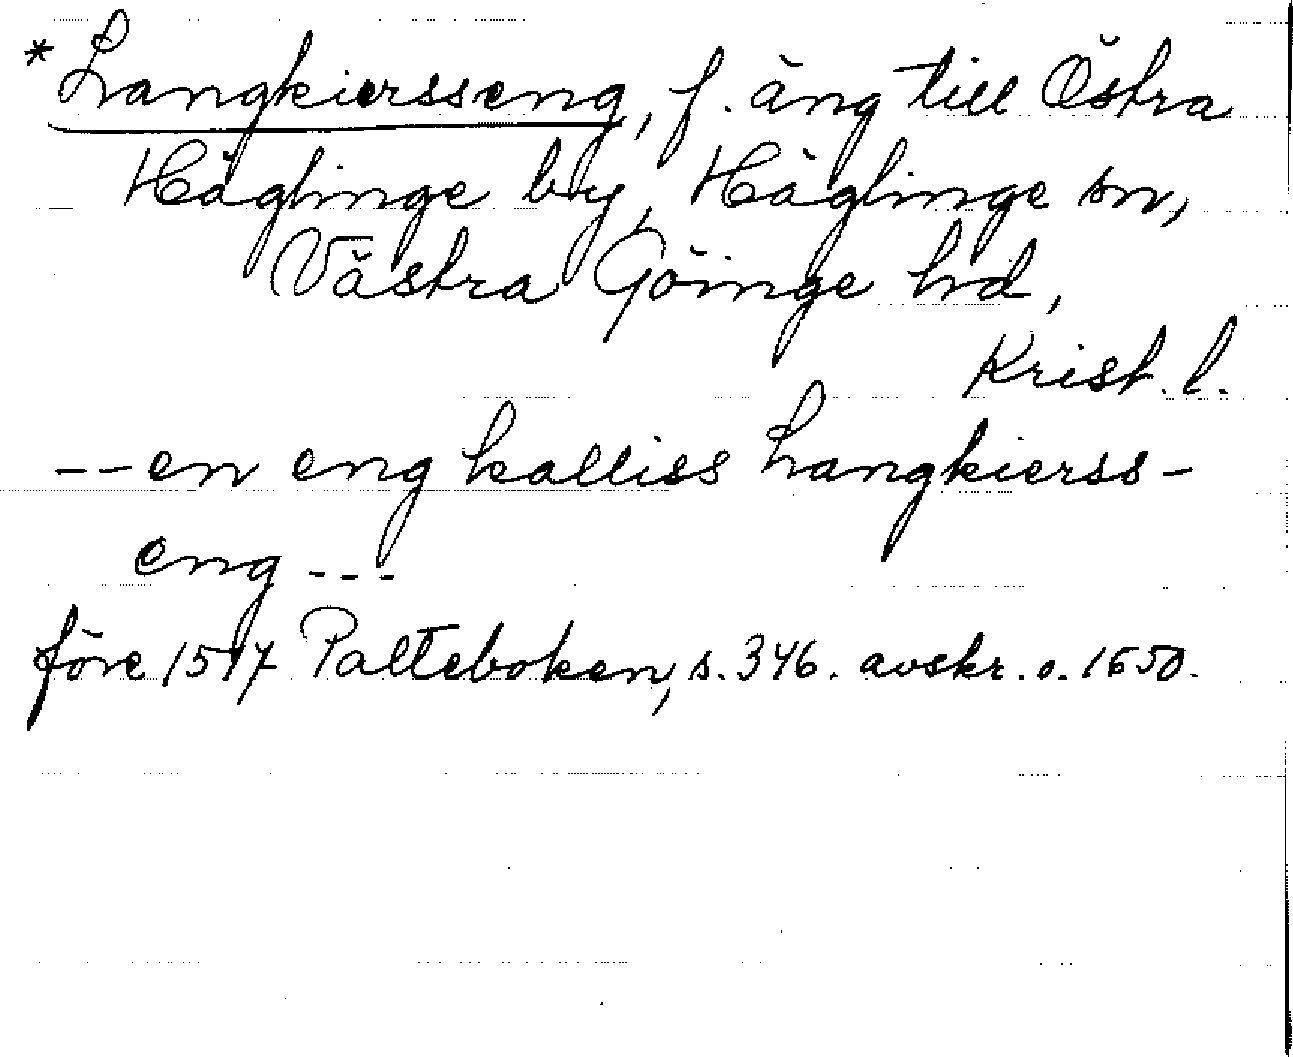 *Langkiersseng, f. äng till Östra
Häglinge by, Häglinge sn,
Västra Göinge hd,
Krist. l.
--en eng kalliss Langkierss-
eng ---
före 1517 Palteboken, s. 346. avskr. o. 1650.